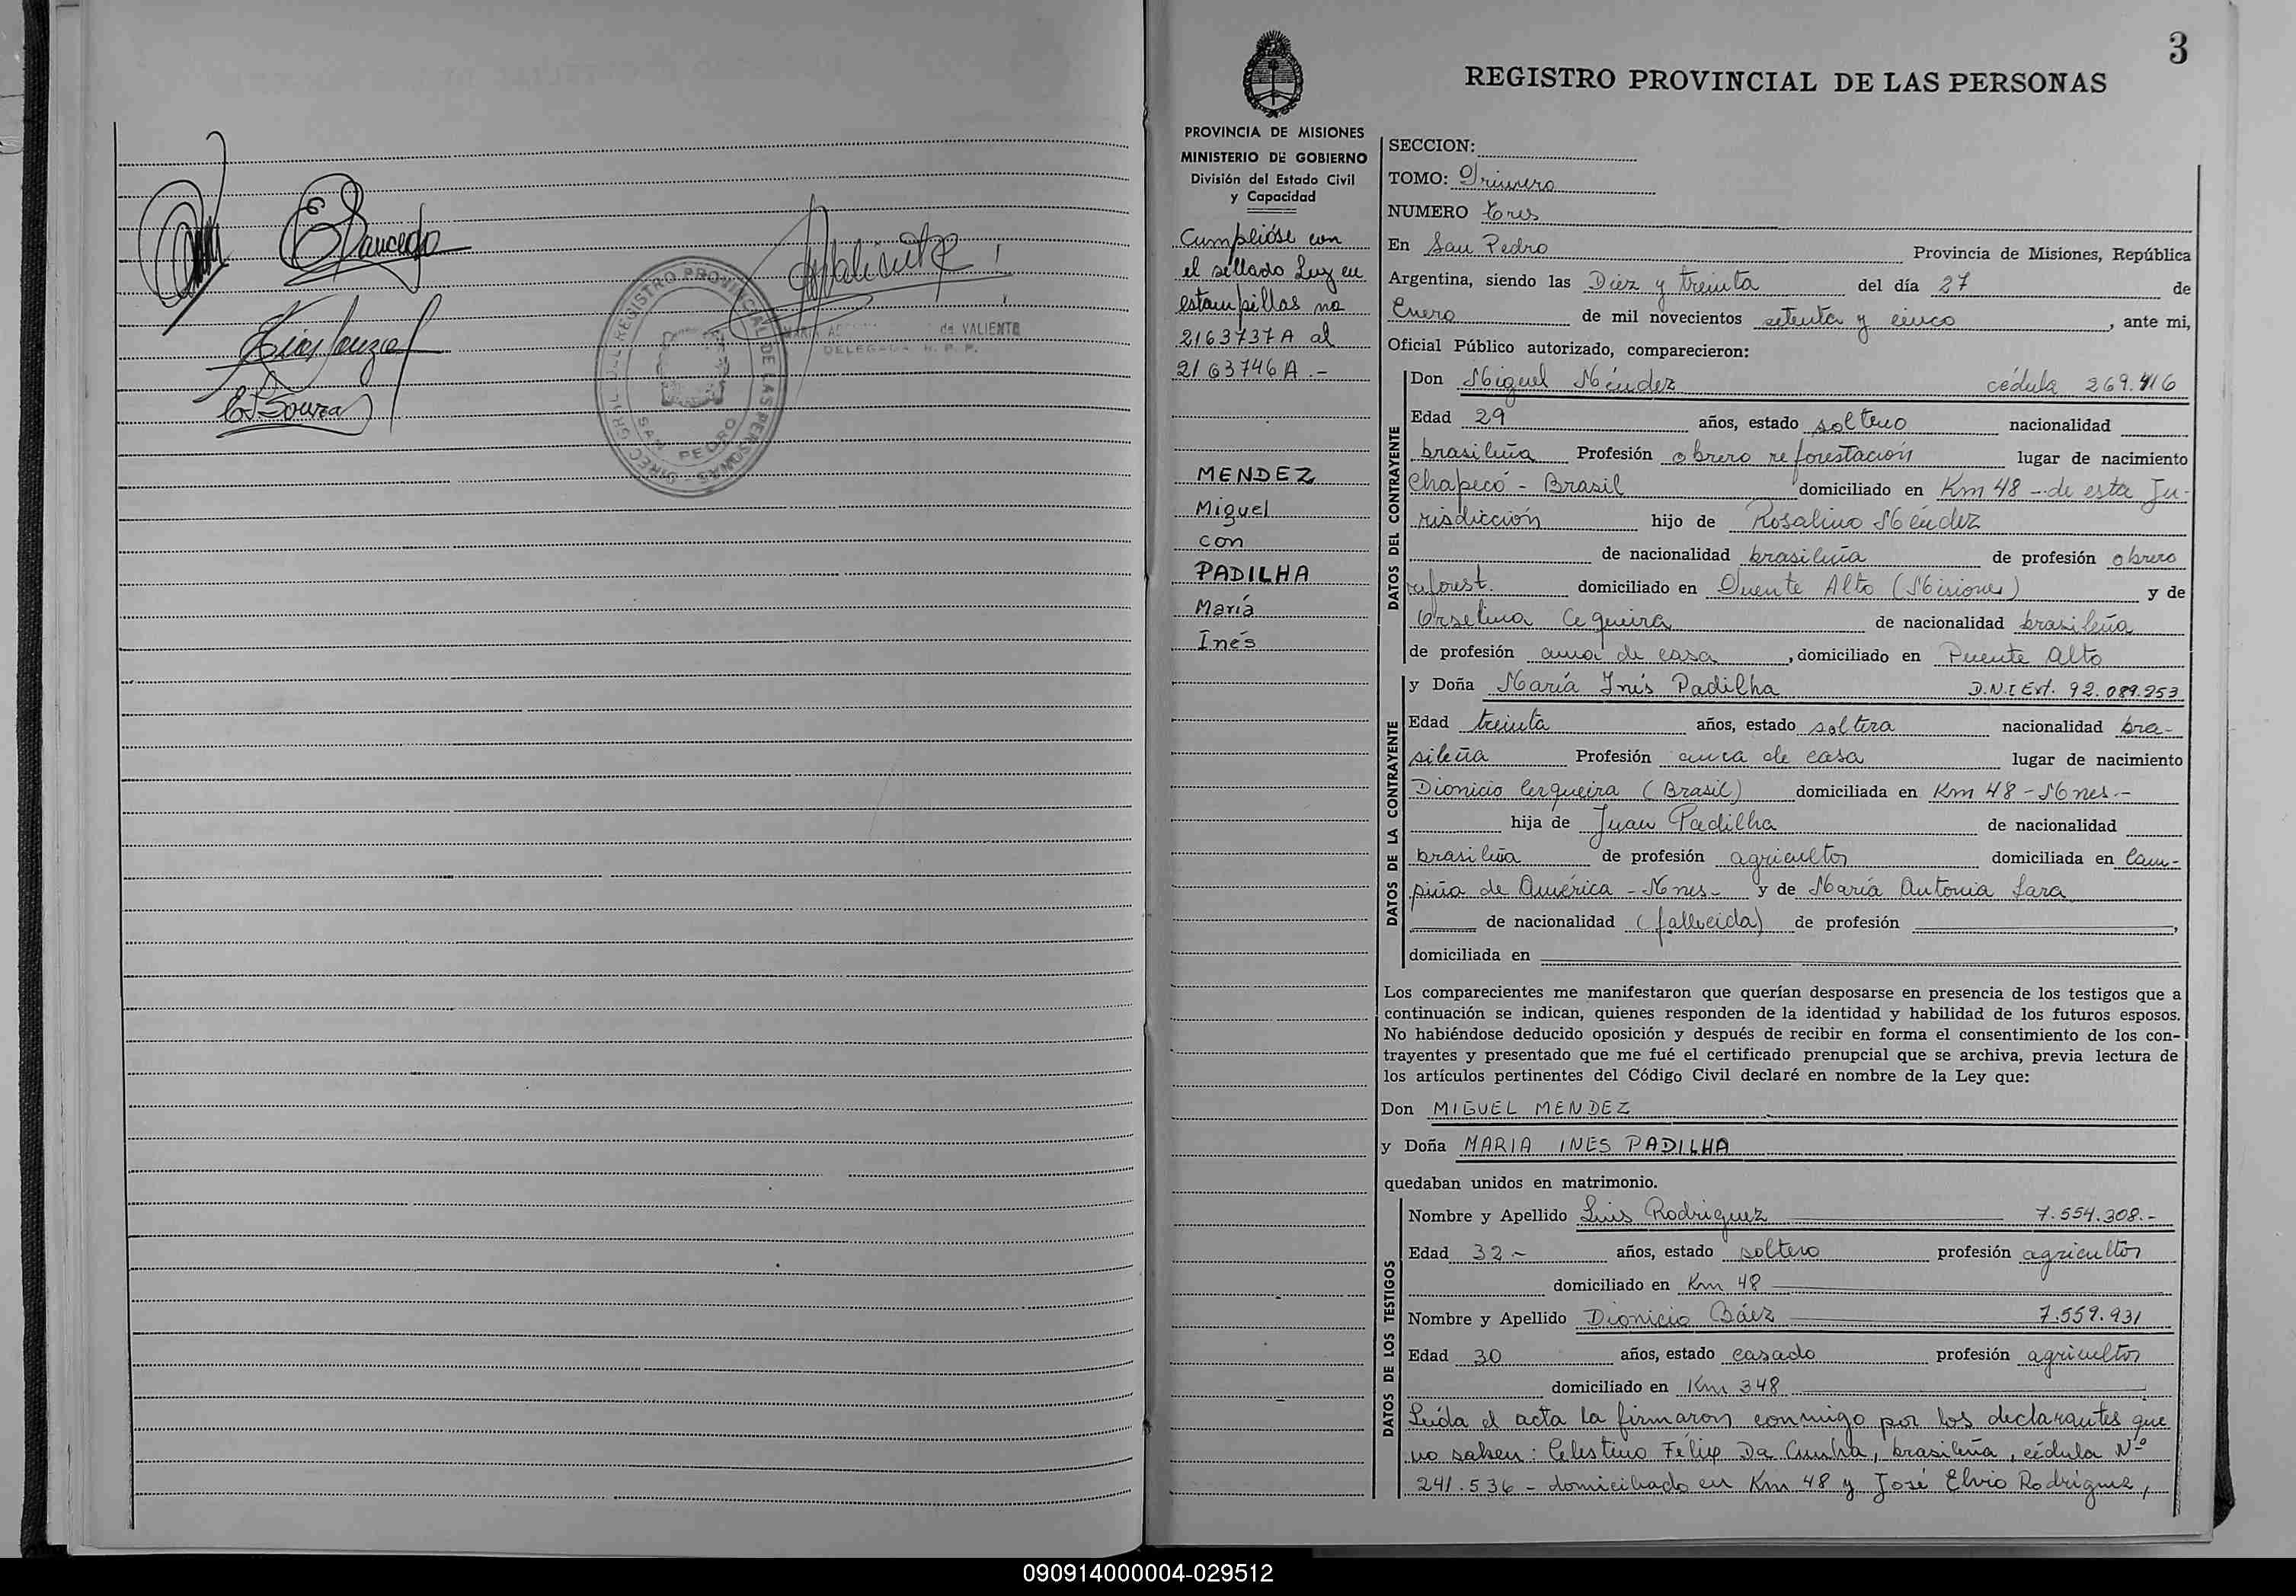 E Saucedo
E. Souza
DIREC. GRAL. DEL REGISTRO PROVINCIAL DE LAS PERSONAS
SAN PEDRO
de VALIENTE
DELEGADA R. P. P.
3
REGISTRO PROVINCIAL DE LAS PERSONAS
PROVINCIA DE MISIONES
MINISTERIO DE GOBIERNO
División del Estado Civil
y Capacidad
Cumplióse con
el sellado Ley en
estampillas no
2163737A al
2163746A.-
MENDEZ
Miguel
con
PADILHA
María
Inés
SECCION:
TOMO: Primero
NUMERO tres
En San Pedro Provincia de Misiones, República
Argentina, siendo las Diez y treinta del día 27 de
Enero de mil novecientos setenta y cinco, ante mi,
Oficial Público autorizado, comparecieron:
DATOS DEL CONTRAYENTE
Don Miguel Méndez cédula 269.416
Edad 29 años, estado soltero nacionalidad
brasileña Profesión obrero reforestación lugar de nacimiento
Chapecó - Brasil domiciliado en Km 48 - de esta Ju-
risdicción hijo de Rosalino Méndez
de nacionalidad brasileña de profesión obrero
reforest. domiciliado en Puente Alto (Misiones) y de
Orselina Cequeira de nacionalidad brasileña
de profesión ama de casa, domiciliado en Puente Alto
DATOS DE LA CONTRAYENTE
y Doña María Inés Padilha D.N.I Ext. 92.089.253
Edad treinta años, estado soltera nacionalidad bra-
sileña Profesión ama de casa lugar de nacimiento
Dionicio Cerqueira (Brasil) domiciliada en Km 48 - Mnes.-
hija de Juan Padilha de nacionalidad
brasileña de profesión agricultor domiciliada en Cam-
piña de América - Mnes- y de María Antonia Lara
de nacionalidad (fallecida) de profesión ,
domiciliada en
Los comparecientes me manifestaron que querían desposarse en presencia de los testigos que a
continuación se indican, quienes responden de la identidad y habilidad de los futuros esposos.
No habiéndose deducido oposición y después de recibir en forma el consentimiento de los con-
trayentes y presentado que me fué el certificado prenupcial que se archiva, previa lectura de
los artículos pertinentes del Código Civil declaré en nombre de la Ley que:
Don MIGUEL MENDEZ
y Doña MARIA INES PADILHA
quedaban unidos en matrimonio.
DATOS DE LOS TESTIGOS
Nombre y Apellido Luis Rodriguez 7.554.308.-
Edad 32.- años, estado soltero profesión agricultor
domiciliado en Km 48
Nombre y Apellido Dionicio Báez 7.559.931
Edad 30 años, estado casado profesión agricultor
domiciliado en Km 348
Leída el acta la firmaron conmigo por los declarantes que
no saben: Celestino Félix Da Cunha, brasileña, cédula Nº
241.536 - domiciliado en Km 48 y José Elvio Rodríguez,
090914000004-029512